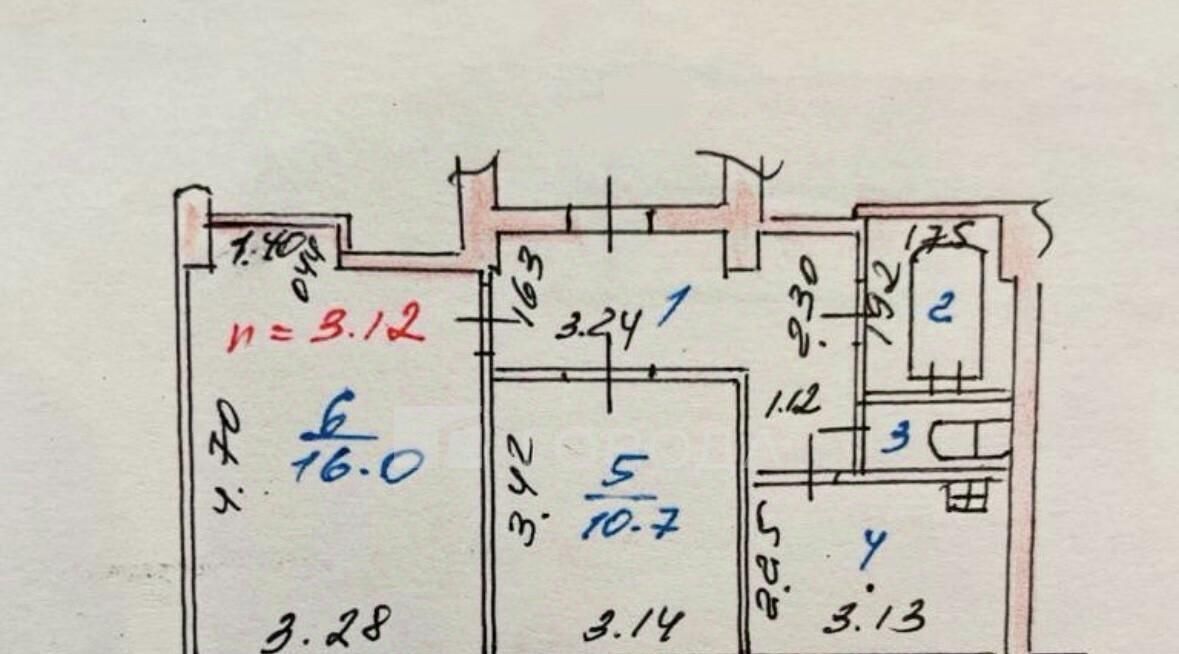 1.40
044
163
175
п = 3.12
3.24
1
2.30
192
2
4.70
6
16.0
1.12
3
3.42
5
10.7
2.25
4
3.28
3.14
3.13